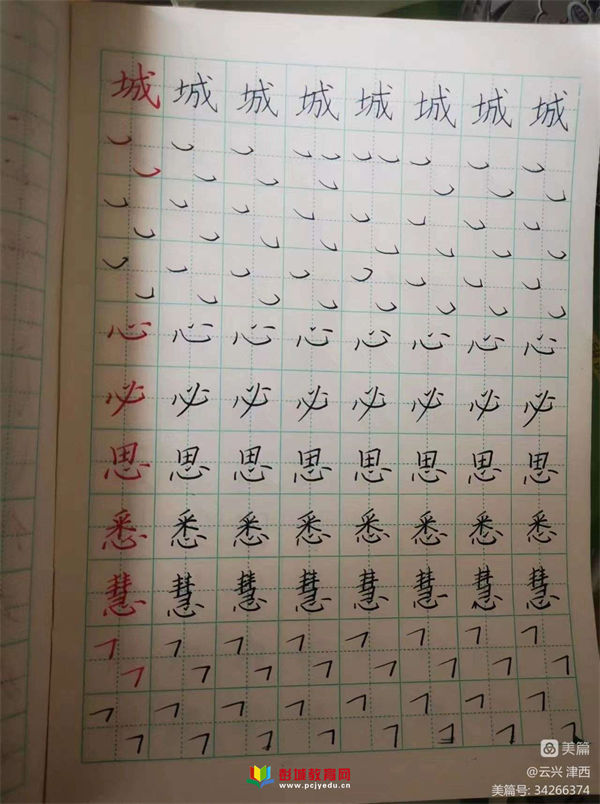 城 城 城 城 城 城 城 城
心 心 心 心 心 心 心 心
必 必 必 必 必 必 必 必
思 思 思 思 思 思 思 思
悉 悉 悉 悉 悉 悉 悉 悉
慧 慧 慧 慧 慧 慧 慧 慧
美篇
@云兴 津西
美篇号: 34266374
彭城教育网
www.pcjyedu.cn